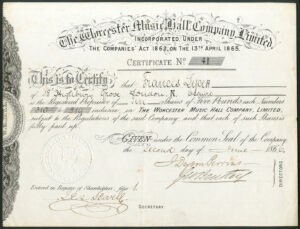 The Worcester Music Hall Company, Limited.
INCORPORATED UNDER
THE COMPANIES' ACT 1862, ON THE 13TH APRIL 1865.
CERTIFICATE No 41
This is to Certify that Francis
of 18 Highbury Grove London N. Esquire
is the Registered Proprietor of Ten Shares of Five Pounds each Numbered
inclusive in THE WORCESTER MUSIC HALL COMPANY, LIMITED,
subject to the Regulations of the said Company and that each of such Shares is
fully paid up.
GIVEN under the Common Seal of the Company
the Second day of June 186
Entered in Register of Shareholders, folio
SECRETARY.
DIRECTORS
MUSIC HALL COMPANY LIMITED